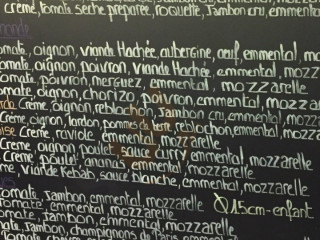 crème, tomate sèche préparée, roquette, Jambon cru, emmental
tomate, oignon, viande Hachée, aubergine, œuf, emmental, mo
tomate, poivron, viande Hachée, emmental, mozz
tomate, poivron, merguez, emmental, mozzarelle
tomate, oignon, chorizo, poivron, emmental, mozzar
Crème, oignon, reblochon, Jambon cru, emmental, mozz
Crème, oignon, lardon, pommes de terre, reblochon, emmental, mozz
Crème, raviole, emmental, mozzarelle
Crème, oignon, poulet, sauce curry, emmental, mozzarelle
Crème, poulet, ananas, emmental, mozzarelle
viande Kebab, sauce blanche, emmental, mozzarelle
Tomate, Jambon, emmental, mozzarelle Ø 15cm-enfant
Tomate, emmental, mozzarelle
tomate, Jambon, emmental, mozzarelle
tomate, Jambon, champignons de Paris, emmental